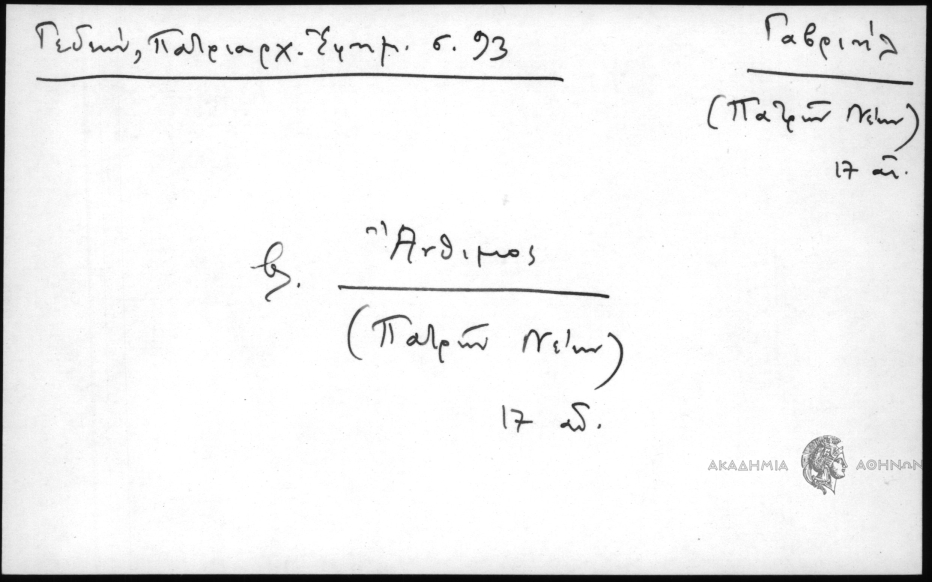 Γεδεών, Πατριαρχ. Ἐφημ. σ. 93
Γαβριήλ
(Πατρῶν Νέων)
17 αἰ.
βλ.
Ἄνθιμος
(Πατρῶν Νέων)
17 αἰ.
ΑΚΑΔΗΜΙΑ ΑΘΗΝΩΝ